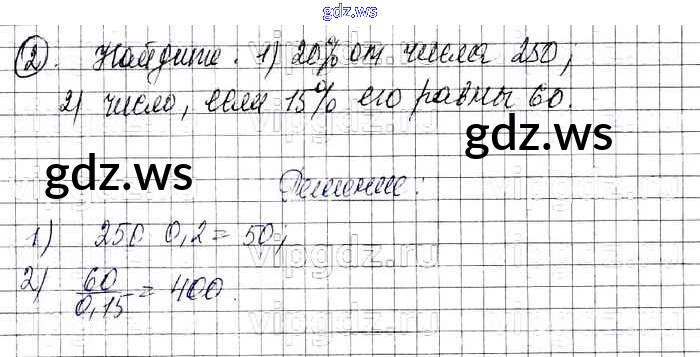 gdz.ws
2. Найдите: 1) 20% от числа 250;
2) число, если 15% его равны 60.
gdz.ws
gdz.ws
Решение:
1) 250 0,2 = 50;
vipgdz.ru
2) 60/0,15 = 400.